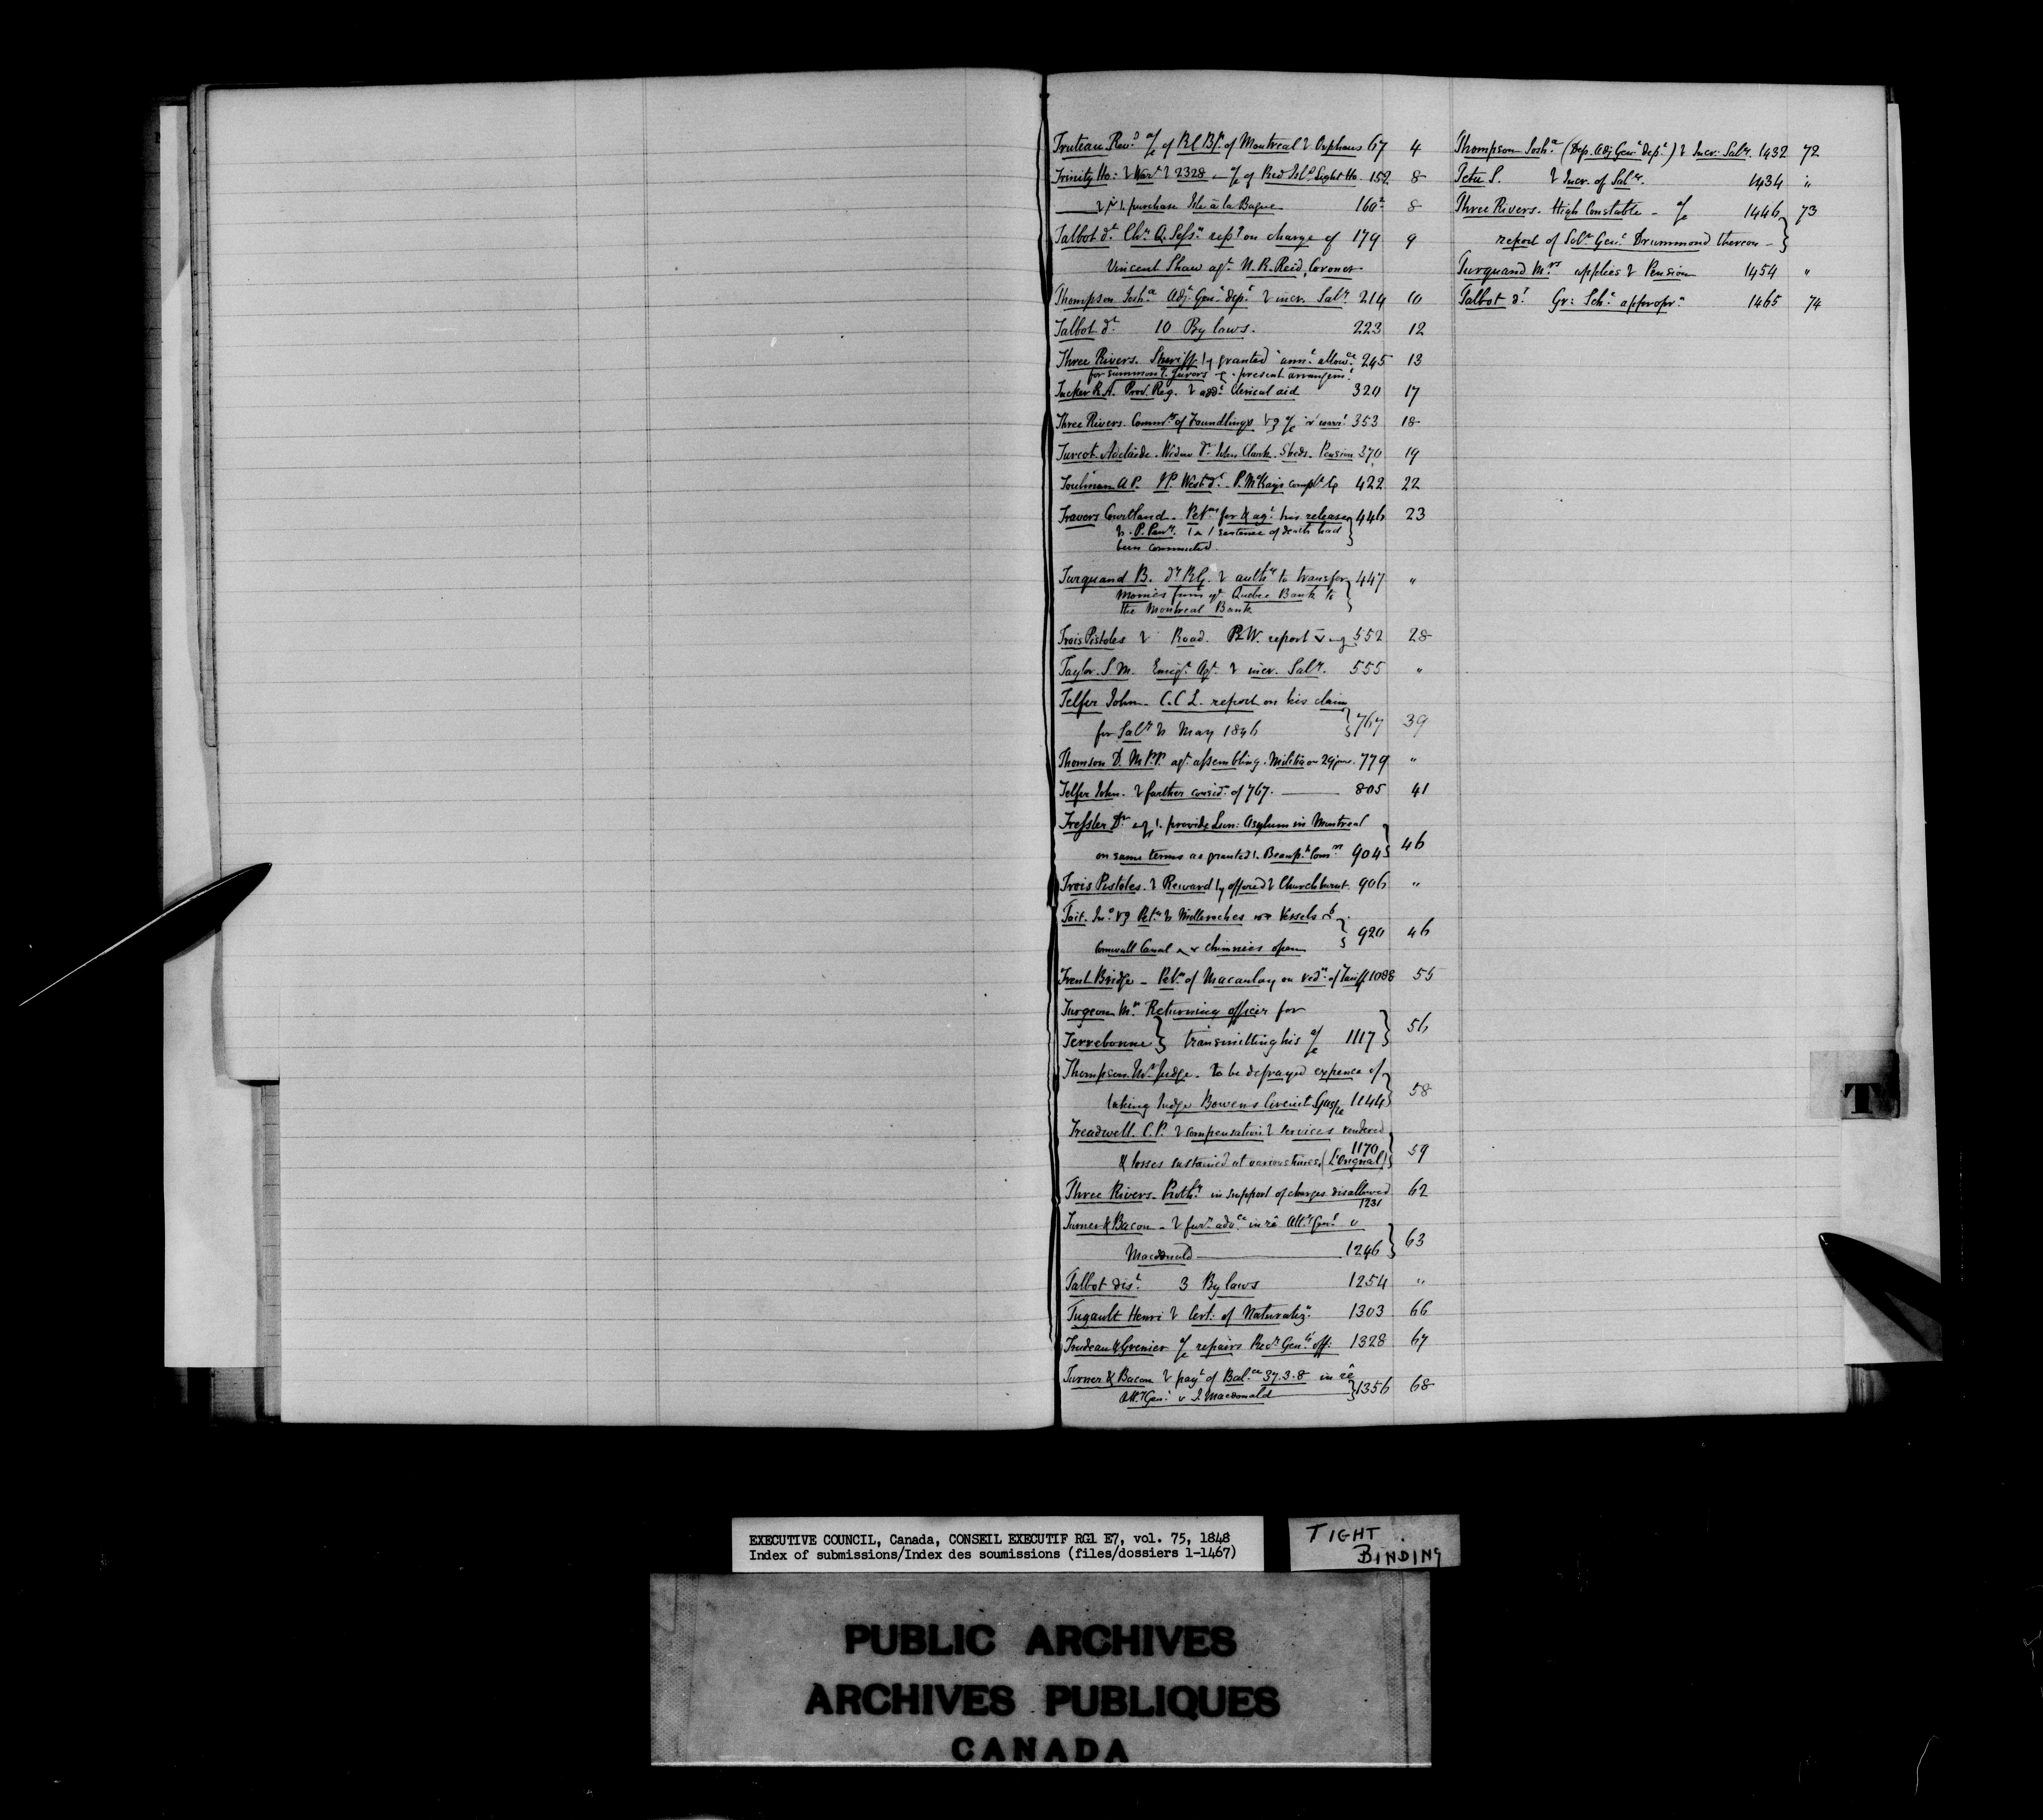 Truteau Revd a/c of R C Bp. of Montreal & Orphans 67 4
Trinity Ho: Wart 2328 - a/c of Red Isld Light Ho. 152 8
purchase Isle à la Bague 160½ 8
Talbot dt Chn Q. Sessns rept on charge of 179 9
Vincent Shaw agt N. R. Reid, Coroner
Thompson Josha Adjt Genl dept incr. Saly 214 10
Talbot dt 10 By laws. 223 12
Three Rivers. Sheriff granted annl allowce 245 13
for summong Jurors present arrangemt
Tucker R. A. Prov. Reg. addl Clerical aid 320 17
Three Rivers. Commrs of Foundlings a/c warrt 353 18
Turcot Adelaide. Widow John Clark. Sheds. Pension 370 19
Toulman A P. JP West dt P. McKays complt 422 22
Travers Courtland. Petns for & agt his release 446 23
P. Peny. sentence of death had
been commuted.
Turquand B. authy to transfer 447 "
Monies from Quebec Bank to
the Montreal Bank
Trois Pistoles Road. B.W. report 552 28
Taylor. S. M. Emigt Agt incr. Saly. 555 "
Telfer John. C.C.L. report on his claim
for Saly May 1846 767 39
Thomson D. M.P.P. agt assembling Militia on 29 June. 779 "
Telfer John. further consid. of 767. 805 41
Tressler Dr provide Lun: Asylum in Montreal
on same terms as granted Beaupt Comrs 904 46
Trois Pistoles. Reward offered Church burnt. 906 "
Tait. Jno. Petn Milleroches Vessels
Cornwall Canal chimnies open 920 46
Trent Bridge - Petn of Macaulay on redn of Tariff 1088 55
Turgeon Mr Returning officer for
Terrebonne transmitting his a/c 1117 56
Thompson Mr Judge. to be defrayed expence of
taking Judge Bowens Circuit Gaspe 1144 58
Treadwell. C. P. compensation services rendered
1170
& losses sustained at various times (L'Orignal) 59
Three Rivers. Prothy in support of charges disallowed 62
1231
Turner & Bacon - furr advce in re Atty Genl v
Macdonald 1246 63
Talbot dist 3 By laws 1254 "
Tugault Henri Cert: of Naturalizn 1303 66
Trudeau & Grenier a/c repairs Recr Genls off: 1328 67
Turner & Bacon payt of Balce 37.3.8 in re
Atty Genl v J. Macdonald 1356 68
Thompson Josha (Dep. Adj Genl dept) Incr: Saly. 1432 72
Tetu S. Incr. of Saly. 1434 "
Three Rivers. High Constable - a/c 1446 73
report of Solr Genl Drummond thereon
Turquand Mrs applies Pension 1454 "
Talbot dt Gr: Schl appropn 1465 74
T
EXECUTIVE COUNCIL, Canada, CONSEIL EXECUTIF RG1 E7, vol. 75, 1848
Index of submissions/Index des soumissions (files/dossiers 1-1467)
TIGHT
BINDING
PUBLIC ARCHIVES
ARCHIVES PUBLIQUES
CANADA